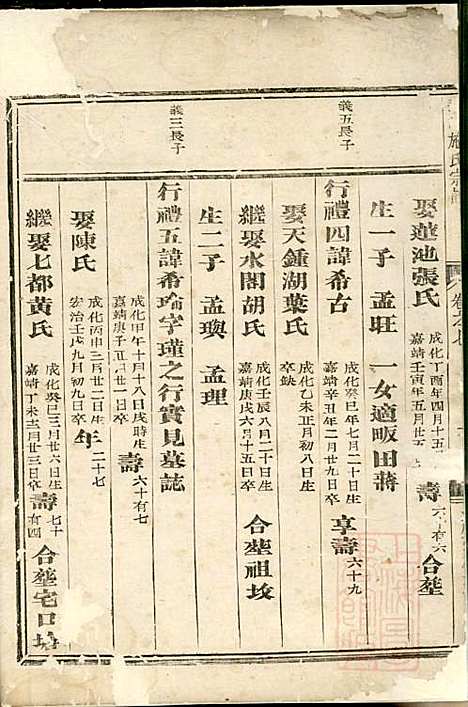 施氏宗譜
娶蓮池張氏 成化丁酉年四月十五 嘉靖壬寅年五月廿五 壽六十有六 合塟
生一子 孟旺 一女適畈田蔣
義五長子
行禮四諱希古 成化癸巳年七月二十日生 嘉靖辛丑年二月廿九日卒 享壽六十九
娶天鍾湖葉氏 成化乙未正月初八日生 卒缺
繼娶水閣胡氏 成化壬辰八月二十日生 嘉靖庚戌六月十五日卒 合塟祖坟
生二子 孟璵 孟理
義三長子
行禮五諱希瑜字瑾之行實見墓誌 成化甲午十月十八日戌時生 嘉靖庚子正月廿一日卒 壽六十有七
娶陳氏 成化丙申三月廿二日生 宏治壬戌九月初九日卒 年二十七
繼娶七都黃氏 成化癸巳三月廿六日生 嘉靖丁未十二月廿三日卒 壽七十有四 合塟宅口坟